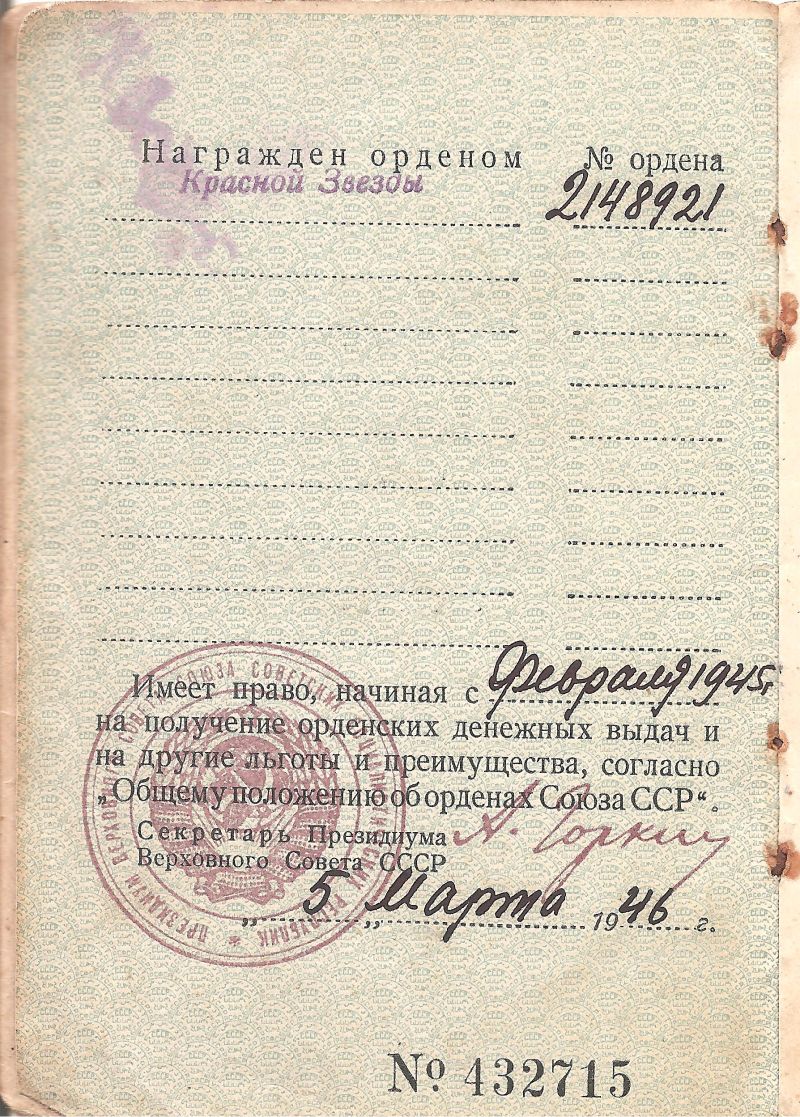 Награжден орденом № ордена
Красной Звезды 2148921
Имеет право, начиная с февраля 1945г.
на получение орденских денежных выдач и
на другие льготы и преимущества, согласно
„Общему положению об орденах Союза ССР“.
Секретарь Президиума А. Горкин
Верховного Совета СССР
„ 5 „ Марта 1946 г.
ПРЕЗИДИУМ ВЕРХОВНОГО СОВЕТА СОЮЗА СОВЕТСКИХ РЕСПУБЛИК
№ 432715